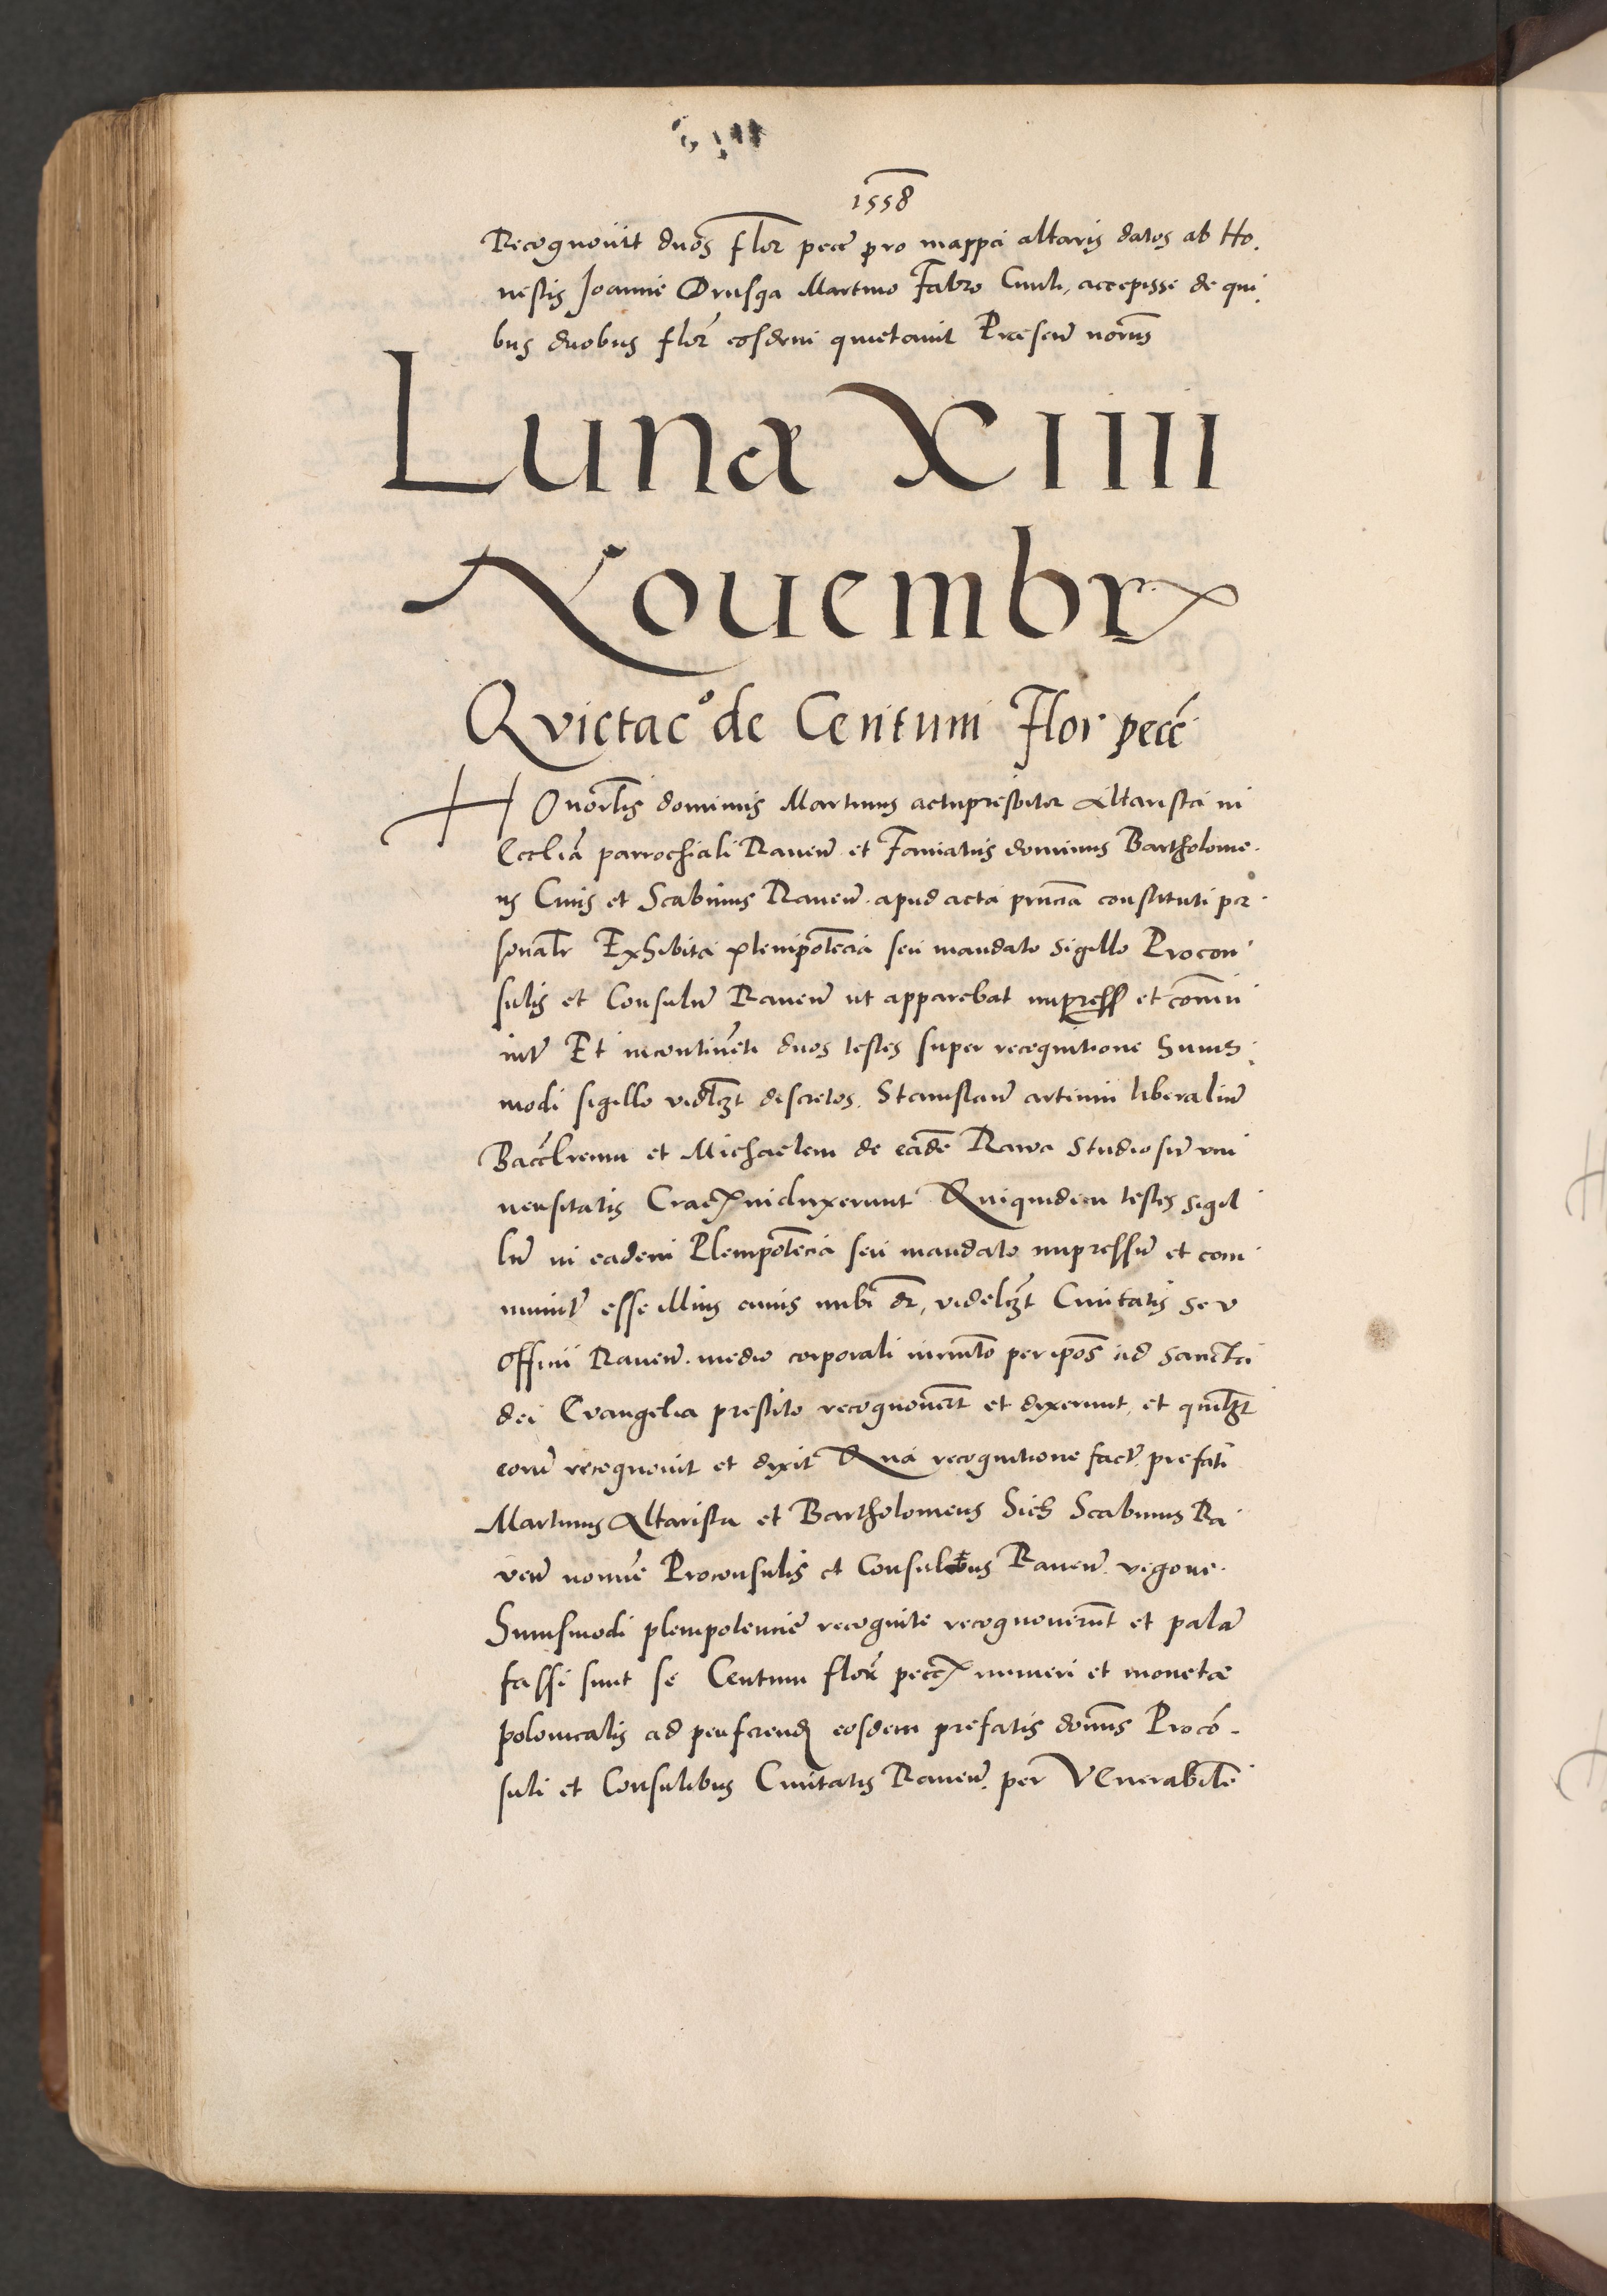 1558
Recognouit duos flor pecc pro mappa altaris datos ab Ho.
nestis Joanne Drusga Martino Fabro Ciuib, accepisse de qui
bus duobus flor eosdem quietauit Presen nonis
Luna XIIII
Nouembr
Qvietac° de Centum Flor pecc
HOnorlis dominus Martinus actupresbiter Altarista in
Ecclia parrochiali Rauen et Famatus dominus Bartholome-
us Ciuis et Scabinus Rauen. apud acta pncia constituti per-
sonalr Exhibita plenipotecia seu mandato sigillo Procon
sulis et Consulu Rauen ut apparebat impress et comu
nit Et incontineti duos testes super recognitione huius
modi sigillo videlzt discretos. Stanislau artium liberaliu
Bacclreum et Michaelem de eade Rawa Studiosu vni
uersitatis Crac induxerunt Quiquidem testes sigil
lu in eadem Plenipotecia seu mandato impressu et com
munit esse illius cuius mibi dr, videlczt Ciuitatis sev
Officii Rauen. medio corporali iurmto per ipos ad sancta
dei Evangelia prestito recognouert et dixerunt, et quilbzt
eoru recognouit et dixit Qua recognitione fact prefati
Martinus Altarista et Bartholomeus Sich Scabinus Ra
ven nomine Proconsulis et Consulibus Rauen. vigore
huiusmodi plenipotencie recognite recognouerunt et pala
fassi sunt se Centum flor pecc numeri et monetæ
polonicalis ad perferend eosdem prefatis domns Proco-
suli et Consulibus Ciuitatis Rauen. per VEnerabile